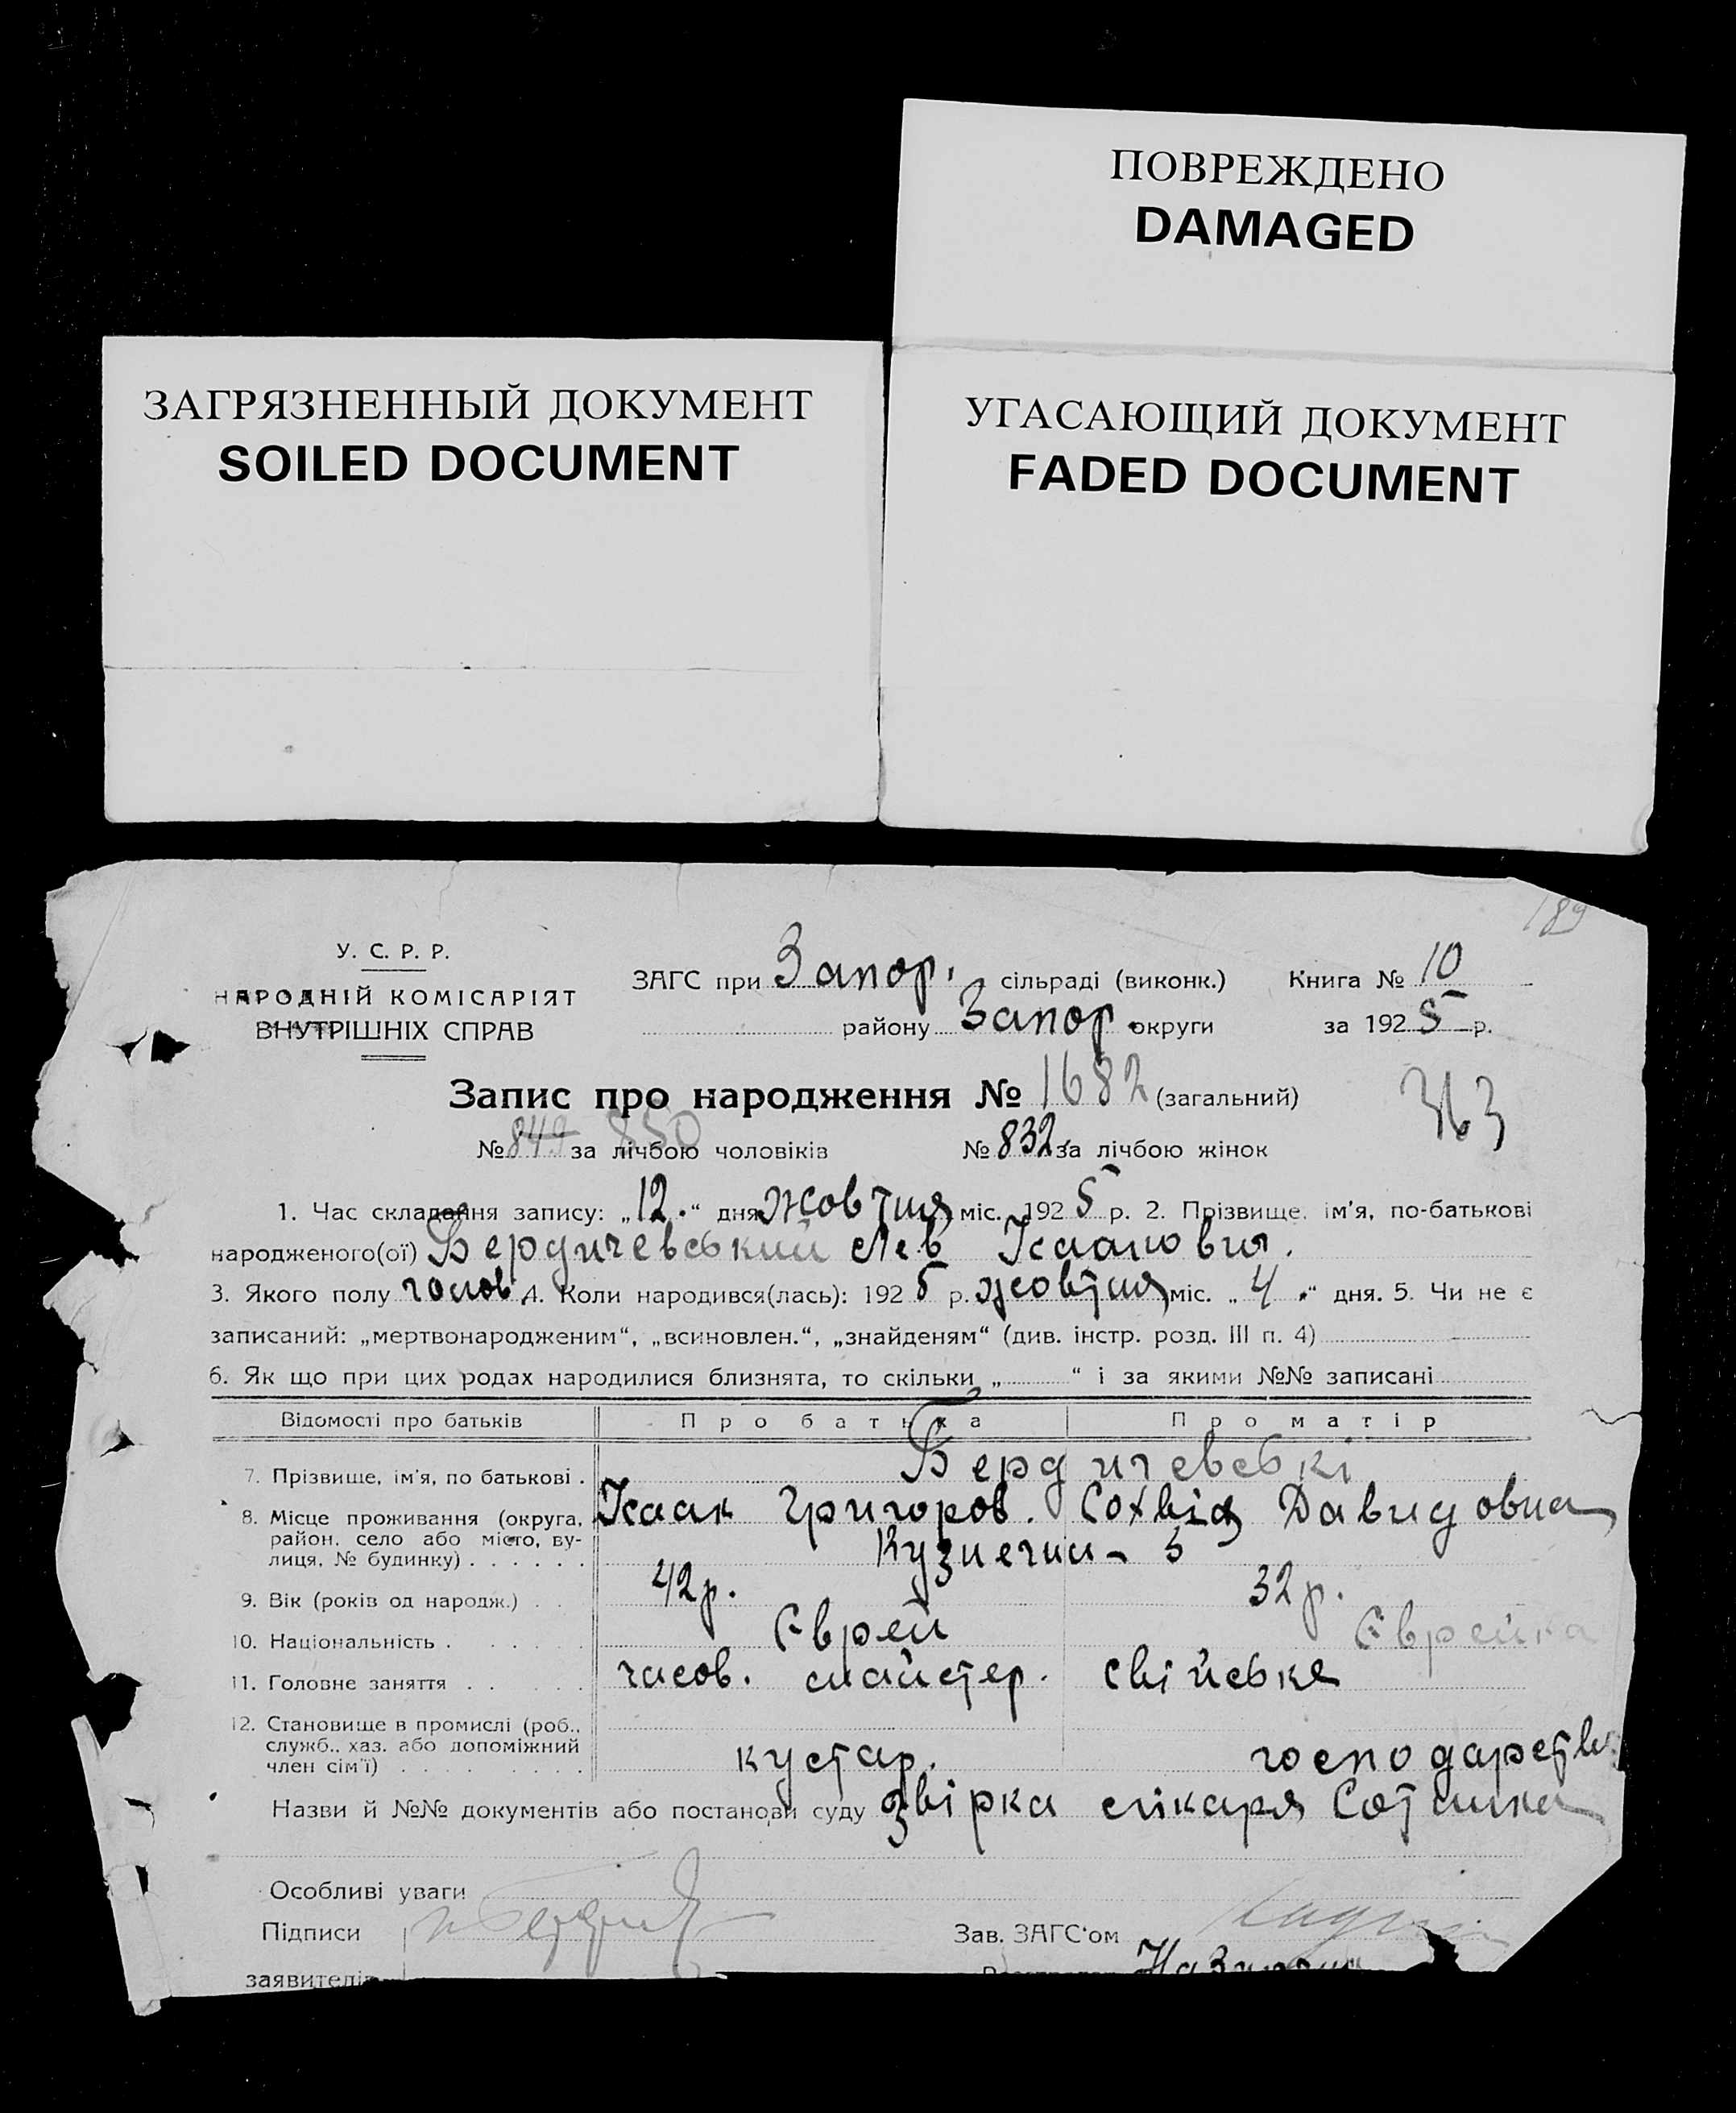 ПОВРЕЖДЕНО
DAMAGED
ЗАГРЯЗНЕННЫЙ ДОКУМЕНТ
SOILED DOCUMENT
УГАСАЮЩИЙ ДОКУМЕНТ
FADED DOCUMENT
189
У. С. Р. Р.
НАРОДНІЙ КОМІСАРІЯТ
ВНУТРІШНІХ СПРАВ
ЗАГС при Запор. сільраді (виконк.) Книга № 10
району Запор. округи за 1925 р.
Запис про народження № 1682 (загальний) 363
№ 849 850 за лічбою чоловіків № 832 за лічбою жінок
1. Час складання запису: „12.“ дня жовтня міс. 1925 р. 2. Прізвище, ім'я, по-батькові
народженого(ої) Бердичевський Лев Ісаакович.
3. Якого полу чолов. 4. Коли народився(лась): 1925 р. жовтня міс. „4.“ дня. 5. Чи не є
записаний: „мертвонародженим“, „всиновлен.“, „знайденям“ (див. інстр. розд. III п. 4)
6. Як що при цих родах народилися близнята, то скільки „ “ і за якими №№ записані
Відомості про батьків Про батька Про матір
7. Прізвище, ім'я, по батькові . Бердичевські
8. Місце проживання (округа, район, село або місто, вулиця, № будинку) . . . . . . Ісаак Григоров. Давидовна
5
9. Вік (років од народж.) . . 42 р. 32 р.
10. Національність . . . . . . Єврей Єврейка
11. Головне заняття . . . . . часов. майстер. свійське
12. Становище в промислі (роб.,
служб., хаз. або допоміжний
член сім'ї) . . . . . . . . . кустар. господарств
Назви й №№ документів або постанови суду звірка лікаря
Особливі уваги
Підписи Зав. ЗАГС'ом
заявителів